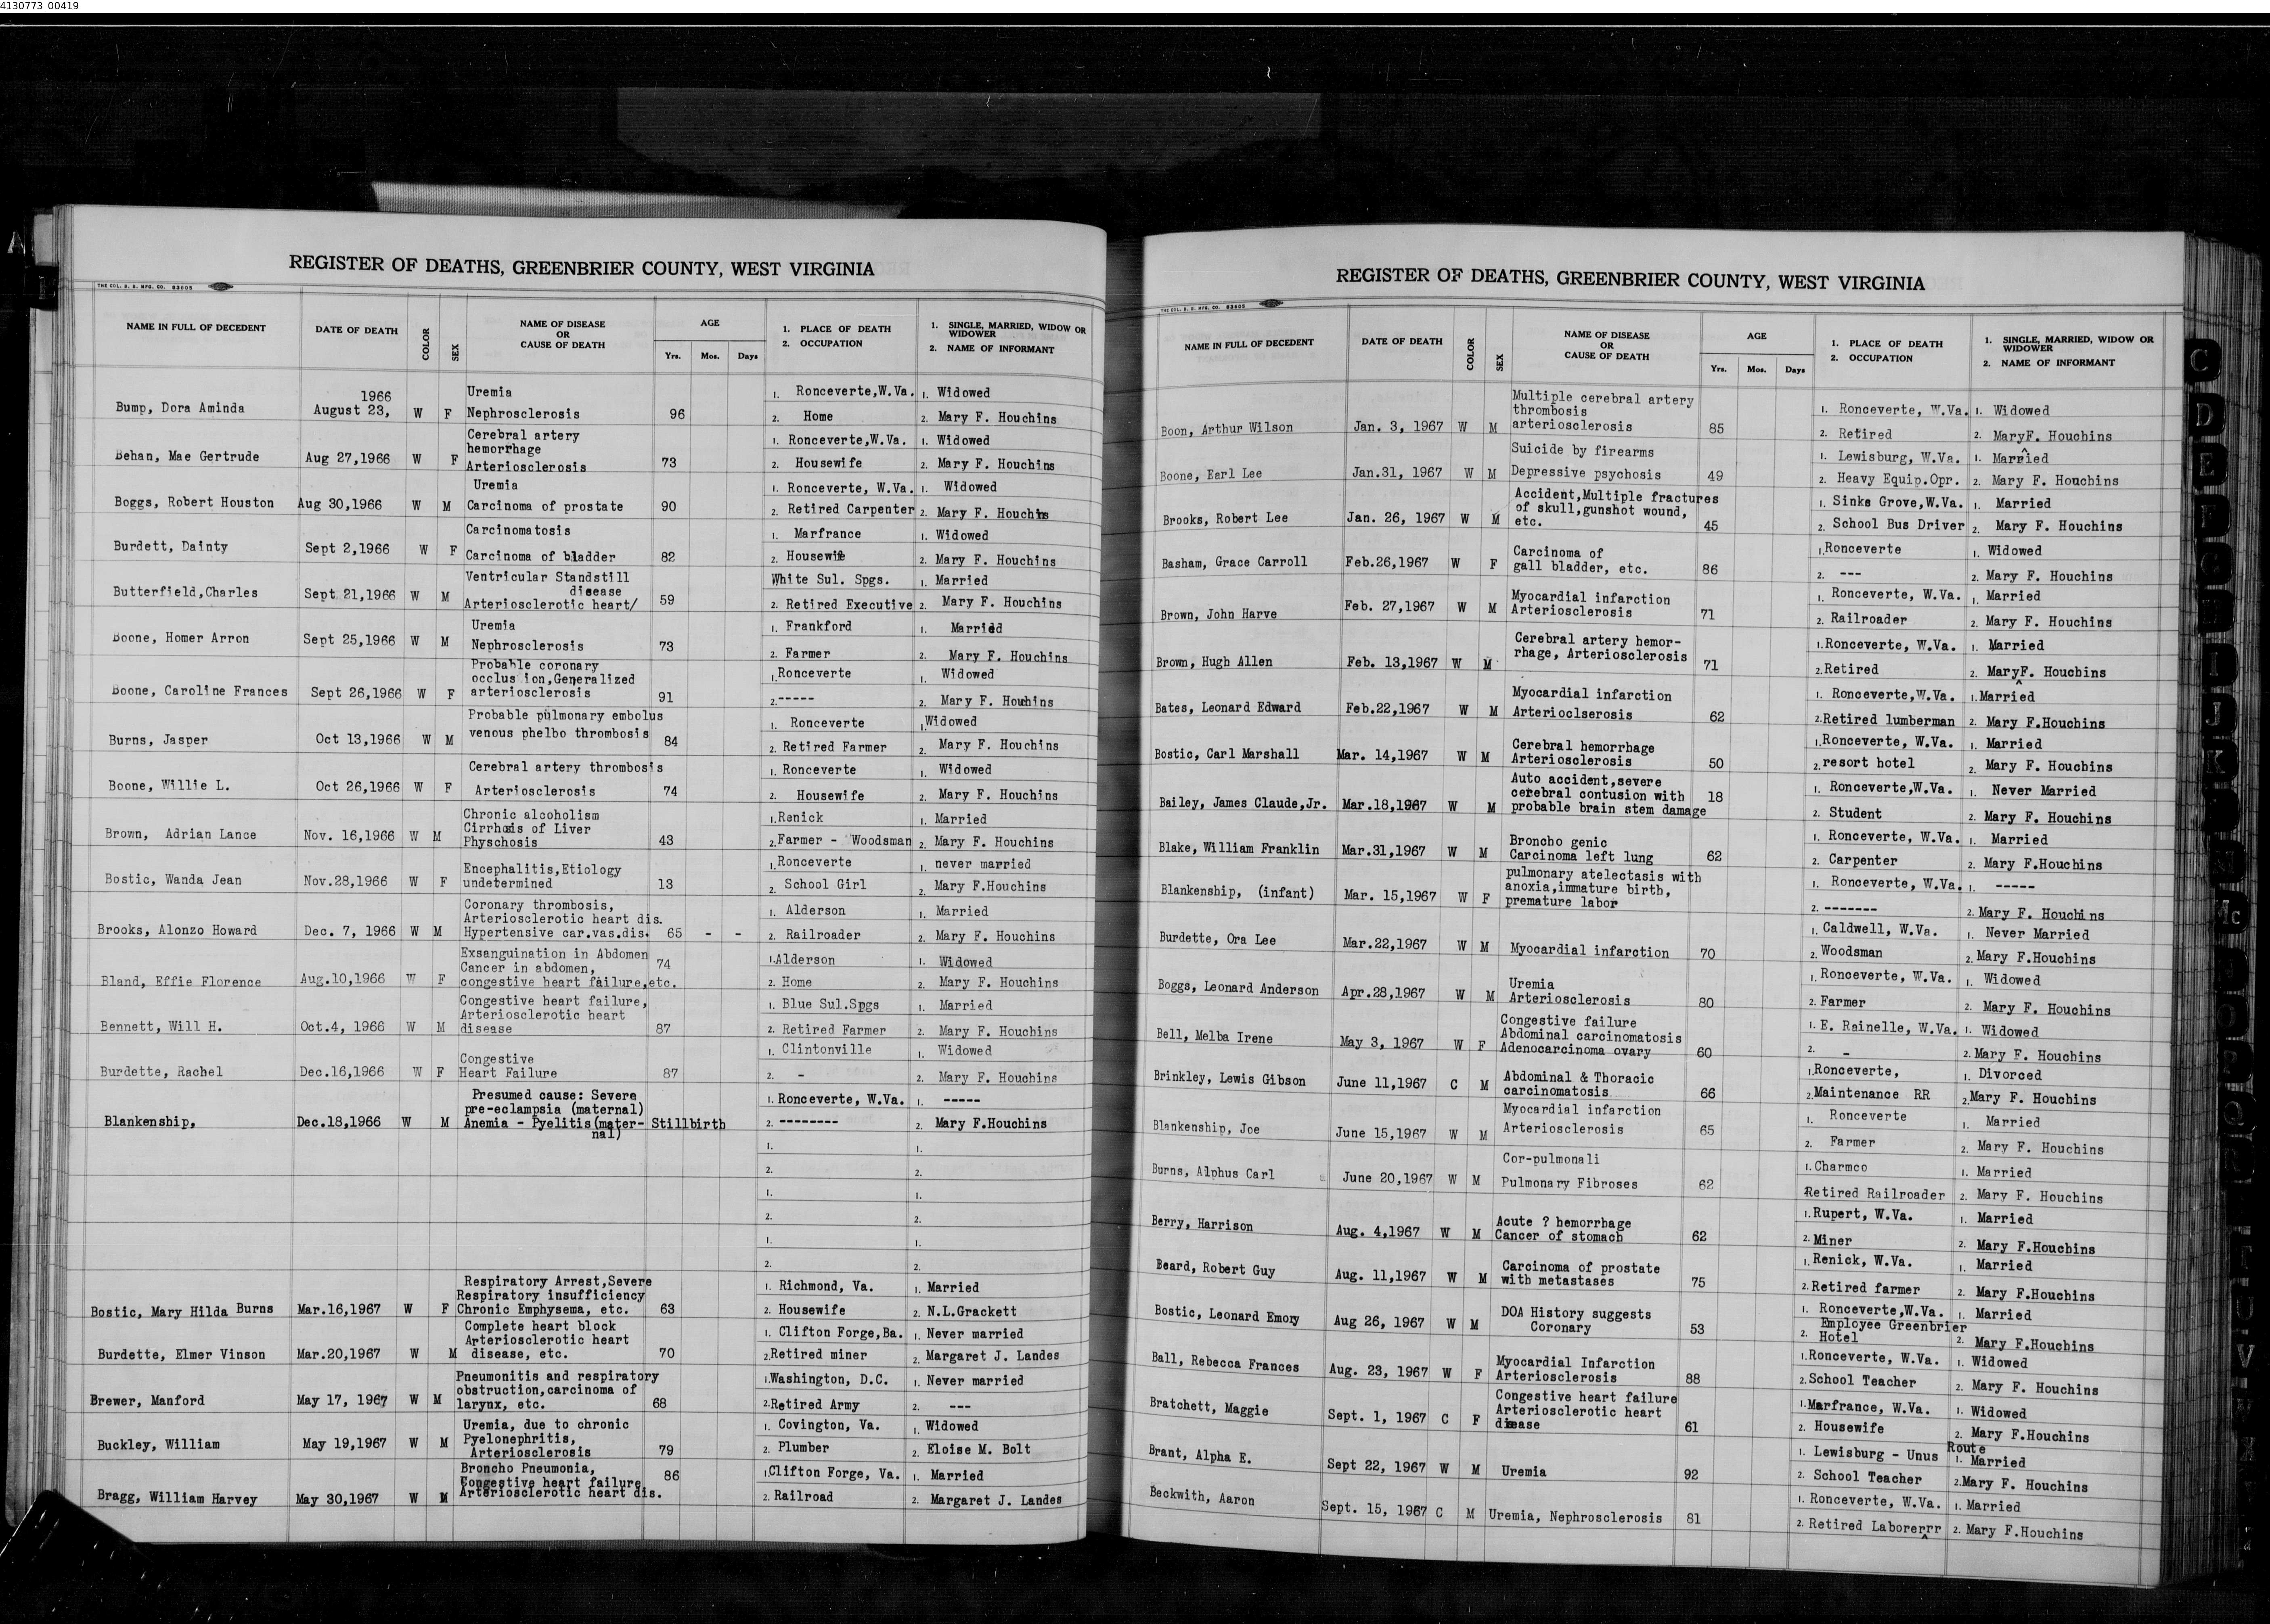 4130773_00419
REGISTER OF DEATHS, GREENBRIER COUNTY, WEST VIRGINIA
THE COL. B. B. MFG. CO. 83605
NAME IN FULL OF DECEDENT DATE OF DEATH COLOR SEX NAME OF DISEASE OR CAUSE OF DEATH AGE Yrs. Mos. Days 1. PLACE OF DEATH 2. OCCUPATION 1. SINGLE, MARRIED, WIDOW OR WIDOWER 2. NAME OF INFORMANT
Bump, Dora Aminda 1966 August 23, W F Uremia Nephrosclerosis 96 1. Ronceverte,W.Va. 2. Home 1. Widowed 2. Mary F. Houchins
Behan, Mae Gertrude Aug 27,1966 W F Cerebral artery hemorrhage Arteriosclerosis 73 1. Ronceverte,W.Va. 2. Housewife 1. Widowed 2. Mary F. Houchins
Boggs, Robert Houston Aug 30,1966 W M Uremia Carcinoma of prostate 90 1. Ronceverte, W.Va. 2. Retired Carpenter 1. Widowed 2. Mary F. Houchins
Burdett, Dainty Sept 2,1966 W F Carcinomatosis Carcinoma of bladder 82 1. Marfrance 2. Housewife 1. Widowed 2. Mary F. Houchins
Butterfield,Charles Sept 21,1966 W M Ventricular Standstill disease Arteriosclerotic heart/ 59 White Sul. Spgs. 2. Retired Executive 1. Married 2. Mary F. Houchins
Boone, Homer Arron Sept 25,1966 W M Uremia Nephrosclerosis 73 1. Frankford 2. Farmer 1. Married 2. Mary F. Houchins
Boone, Caroline Frances Sept 26,1966 W F Probable coronary occlusion,Generalized arteriosclerosis 91 1. Ronceverte 2. ----- 1. Widowed 2. Mary F. Houchins
Burns, Jasper Oct 13,1966 W M Probable pulmonary embolus venous phelbo thrombosis 84 1. Ronceverte 2. Retired Farmer 1. Widowed 2. Mary F. Houchins
Boone, Willie L. Oct 26,1966 W F Cerebral artery thrombosis Arteriosclerosis 74 1. Ronceverte 2. Housewife 1. Widowed 2. Mary F. Houchins
Brown, Adrian Lance Nov. 16,1966 W M Chronic alcoholism Cirrhosis of Liver Physchosis 43 1. Renick 2. Farmer - Woodsman 1. Married 2. Mary F. Houchins
Bostic, Wanda Jean Nov.28,1966 W F Encephalitis,Etiology undetermined 13 1. Ronceverte 2. School Girl 1. never married 2. Mary F.Houchins
Brooks, Alonzo Howard Dec. 7, 1966 W M Coronary thrombosis, Arteriosclerotic heart dis. Hypertensive car.vas.dis. 65 - - 1. Alderson 2. Railroader 1. Married 2. Mary F. Houchins
Bland, Effie Florence Aug.10,1966 W F Exsanguination in Abdomen Cancer in abdomen, congestive heart failure,etc. 74 1. Alderson 2. Home 1. Widowed 2. Mary F. Houchins
Bennett, Will H. Oct.4, 1966 W M Congestive heart failure, Arteriosclerotic heart disease 87 1. Blue Sul.Spgs 2. Retired Farmer 1. Married 2. Mary F. Houchins
Burdette, Rachel Dec.16,1966 W F Congestive Heart Failure 87 1. Clintonville 2. - 1. Widowed 2. Mary F. Houchins
Blankenship, Dec.18,1966 W M Presumed cause: Severe pre-eclampsia (maternal) Anemia - Pyelitis(mater-nal) Stillbirth 1. Ronceverte, W.Va. 2. -------- 1. ----- 2. Mary F.Houchins
1. 1.
2. 2.
1. 1.
2. 2.
1. 1.
2. 2.
Bostic, Mary Hilda Burns Mar.16,1967 W F Respiratory Arrest,Severe Respiratory insufficiency Chronic Emphysema, etc. 63 1. Richmond, Va. 2. Housewife 1. Married 2. N.L.Grackett
Burdette, Elmer Vinson Mar.20,1967 W M Complete heart block Arteriosclerotic heart disease, etc. 70 1. Clifton Forge,Ba. 2. Retired miner 1. Never married 2. Margaret J. Landes
Brewer, Manford May 17, 1967 W M Pneumonitis and respiratory obstruction,carcinoma of larynx, etc. 68 1. Washington, D.C. 2. Retired Army 1. Never married 2. ---
Buckley, William May 19,1967 W M Uremia, due to chronic Pyelonephritis, Arteriosclerosis 79 1. Covington, Va. 2. Plumber 1. Widowed 2. Eloise M. Bolt
Bragg, William Harvey May 30,1967 W M Broncho Pneumonia, Congestive heart failure, Arteriosclerotic heart dis. 86 1. Clifton Forge, Va. 2. Railroad 1. Married 2. Margaret J. Landes
REGISTER OF DEATHS, GREENBRIER COUNTY, WEST VIRGINIA
THE COL. B. B. MFG. CO. 83605
NAME IN FULL OF DECEDENT DATE OF DEATH COLOR SEX NAME OF DISEASE OR CAUSE OF DEATH AGE Yrs. Mos. Days 1. PLACE OF DEATH 2. OCCUPATION 1. SINGLE, MARRIED, WIDOW OR WIDOWER 2. NAME OF INFORMANT
Boon, Arthur Wilson Jan. 3, 1967 W M Multiple cerebral artery thrombosis arteriosclerosis 85 1. Ronceverte, W.Va. 2. Retired 1. Widowed 2. MaryF. Houchins
Boone, Earl Lee Jan.31, 1967 W M Suicide by firearms Depressive psychosis 49 1. Lewisburg, W.Va. 2. Heavy Equip.Opr. 1. Married 2. Mary F. Houchins
Brooks, Robert Lee Jan. 26, 1967 W M Accident,Multiple fractures of skull,gunshot wound, etc. 45 1. Sinks Grove,W.Va. 2. School Bus Driver 1. Married 2. Mary F. Houchins
Basham, Grace Carroll Feb.26,1967 W F Carcinoma of gall bladder, etc. 86 1. Ronceverte 2. --- 1. Widowed 2. Mary F. Houchins
Brown, John Harve Feb. 27,1967 W M Myocardial infarction Arteriosclerosis 71 1. Ronceverte, W.Va. 2. Railroader 1. Married 2. Mary F. Houchins
Brown, Hugh Allen Feb. 13,1967 W M Cerebral artery hemor-rhage, Arteriosclerosis 71 1. Ronceverte, W.Va. 2. Retired 1. Married 2. MaryF. Houchins
Bates, Leonard Edward Feb.22,1967 W M Myocardial infarction Arterioclserosis 62 1. Ronceverte,W.Va. 2. Retired lumberman 1. Married 2. Mary F.Houchins
Bostic, Carl Marshall Mar. 14,1967 W M Cerebral hemorrhage Arteriosclerosis 50 1. Ronceverte, W.Va. 2. resort hotel 1. Married 2. Mary F. Houchins
Bailey, James Claude,Jr. Mar.18,1967 W M Auto accident,severe cerebral contusion with probable brain stem damage 18 1. Ronceverte,W.Va. 2. Student 1. Never Married 2. Mary F. Houchins
Blake, William Franklin Mar.31,1967 W M Broncho genic Carcinoma left lung 62 1. Ronceverte, W.Va. 2. Carpenter 1. Married 2. Mary F.Houchins
Blankenship, (infant) Mar. 15,1967 W F pulmonary atelectasis with anoxia,immature birth, premature labor 1. Ronceverte, W.Va. 2. ------- 1. ----- 2. Mary F. Houchins
Burdette, Ora Lee Mar.22,1967 W M Myocardial infarction 70 1. Caldwell, W.Va. 2. Woodsman 1. Never Married 2. Mary F.Houchins
Boggs, Leonard Anderson Apr.28,1967 W M Uremia Arteriosclerosis 80 1. Ronceverte, W.Va. 2. Farmer 1. Widowed 2. Mary F. Houchins
Bell, Melba Irene May 3, 1967 W F Congestive failure Abdominal carcinomatosis Adenocarcinoma ovary 60 1. E. Rainelle, W.Va. 2. - 1. Widowed 2. Mary F. Houchins
Brinkley, Lewis Gibson June 11,1967 C M Abdominal & Thoracic carcinomatosis 66 1. Ronceverte, 2. Maintenance RR 1. Divorced 2. Mary F. Houchins
Blankenship, Joe June 15,1967 W M Myocardial infarction Arteriosclerosis 65 1. Ronceverte 2. Farmer 1. Married 2. Mary F. Houchins
Burns, Alphus Carl June 20,1967 W M Cor-pulmonali Pulmonary Fibroses 62 1. Charmco Retired Railroader 1. Married 2. Mary F. Houchins
Berry, Harrison Aug. 4,1967 W M Acute ? hemorrhage Cancer of stomach 62 1. Rupert, W.Va. 2. Miner 1. Married 2. Mary F.Houchins
Beard, Robert Guy Aug. 11,1967 W M Carcinoma of prostate with metastases 75 1. Renick, W.Va. 2. Retired farmer 1. Married 2. Mary F.Houchins
Bostic, Leonard Emory Aug 26, 1967 W M DOA History suggests Coronary 53 1. Ronceverte,W.Va. 2. Employee Greenbrier Hotel 1. Married 2. Mary F.Houchins
Ball, Rebecca Frances Aug. 23, 1967 W F Myocardial Infarction Arteriosclerosis 88 1. Ronceverte, W.Va. 2. School Teacher 1. Widowed 2. Mary F. Houchins
Bratchett, Maggie Sept. 1, 1967 C F Congestive heart failure Arteriosclerotic heart disease 61 1. Marfrance, W.Va. 2. Housewife 1. Widowed 2. Mary F.Houchins
Brant, Alpha E. Sept 22, 1967 W M Uremia 92 1. Lewisburg - Unus Route 2. School Teacher 1. Married 2. Mary F. Houchins
Beckwith, Aaron Sept. 15, 1967 C M Uremia, Nephrosclerosis 81 1. Ronceverte, W.Va. 2. Retired Laborerrr 1. Married 2. Mary F.Houchins
A
C
D
E
F
G
I
J
K
Mc